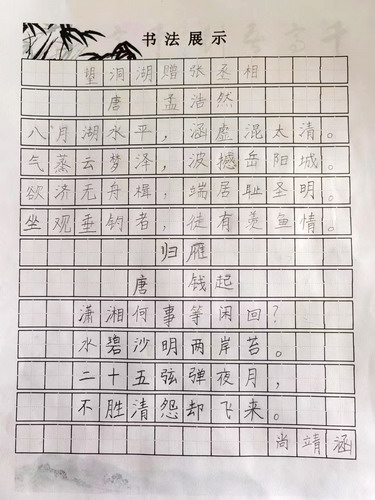 书法展示
望洞湖赠张丞相
唐 孟浩然
八月湖水平，涵虚混太清。
气蒸云梦泽，波撼岳阳城。
欲济无舟楫，端居耻圣明。
坐观垂钓者，徒有羡鱼情。
归雁
唐 钱起
潇湘何事等闲回？
水碧沙明两岸苔。
二十五弦弹夜月，
不胜清怨却飞来。
尚靖涵